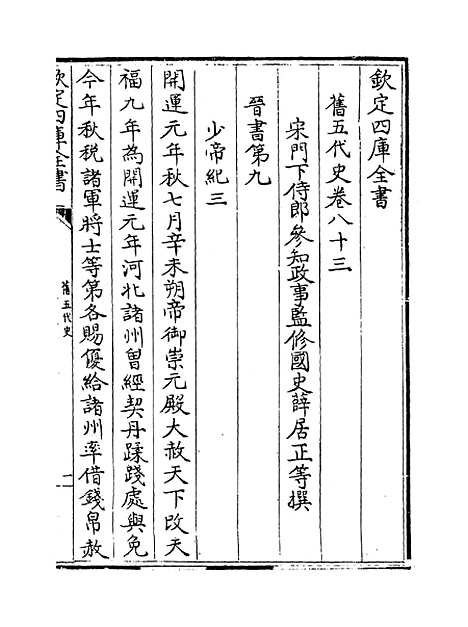 欽定四庫全書
舊五代史卷八十三
宋門下侍郎參知政事監修國史薛居正等撰
晉書第九
少帝紀三
開運元年秋七月辛未朔帝御崇元殿大赦天下改天
福九年為開運元年河北諸州曾經契丹蹂踐處與免
今年秋稅諸軍將士等第各賜優給諸州率借錢帛赦
欽定四庫全書
舊五代史